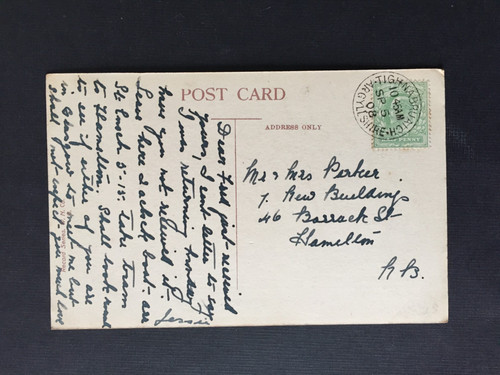 POST CARD
ADDRESS ONLY
TIGHNABRUAICH
10.45AM
SP 5
08
ARGYLLSHIRE
PENNY
Mr & Mrs Parker
7. New Buildings
46 Barrack St
Hamilton
N.B.
Dear Fred just received
yours, I sent letter to say
I was returning Sunday
have you not received it.
Leave here 2 oclock boat - arr
St Enoch 5-15. Take tram
to Hamilton Shall look
to see if either of you are
in Glasgow to meet me but
shall not expect you much love
Jessie